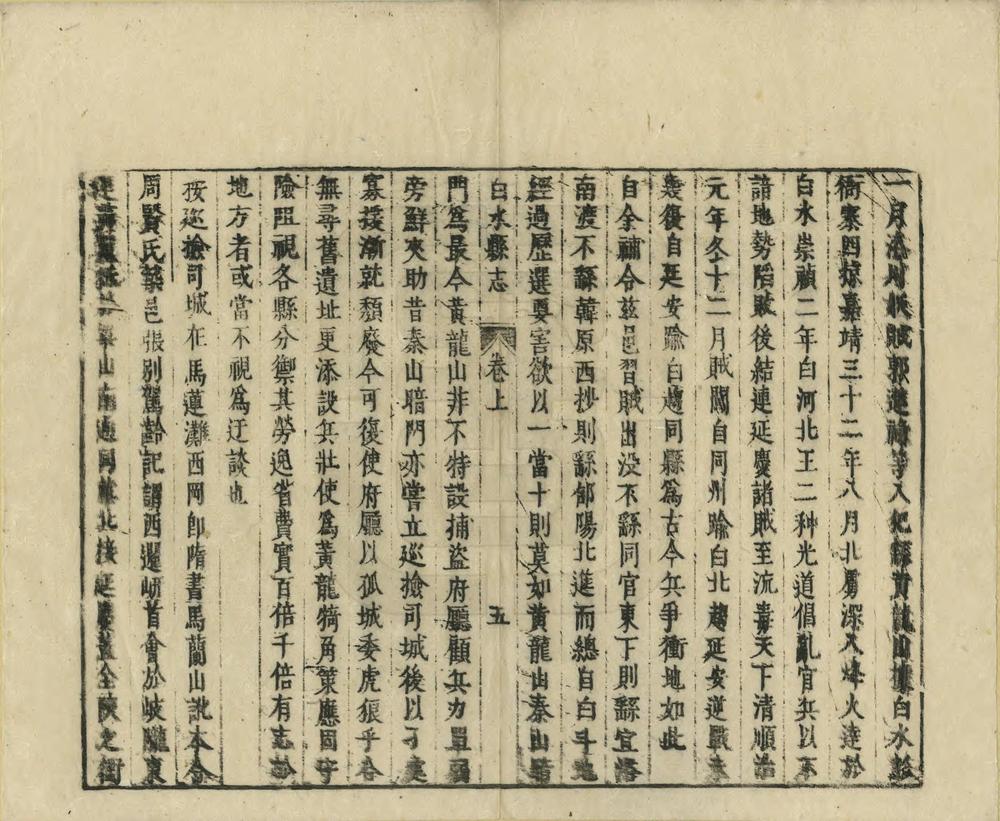 一月洛川妖賊郭蓮等入犯縣黃龍山據白水
衙寨四掠嘉靖三十二年八月北虜深入烽火達於
白水崇禎二年白河北王二种光道倡亂官兵以不
諳地勢陷賊後結連延慶諸賊至流毒天下清順治
元年冬十二月賊闖自同州踰白北趨延安逆戰未
幾復自延安踰白趨同縣爲古今兵爭衝地如此
自余禰令茲邑習賊出没不繇同官東下則繇宜洛
南渡不繇韓原西抄則繇郃陽北進而總自白斗地
經過歷選要害欲以一當十則莫如黃龍山秦山暗
白水縣志 卷上 五
門爲最今黃龍山非不特設捕盜府廳顧兵力單弱
旁鮮夾助昔秦山暗門亦嘗立巡檢司城後以丁糞
寡援漸就頽廢今可復使府廳以孤城委虎狼乎合
無尋舊遺址更添設兵壯使爲黃龍犄角策應固守
險阻視各縣分禦其勞逸省費實百倍千倍有志於
地方者或當不視爲迂談也
按巡檢司城在馬蓮灘西岡卽隋書馬蘭山訛本合
周賢氏築邑張別駕齡記謂西邐岍首會於岐隴東
山南 同華北接延慶蓋全陝之衝